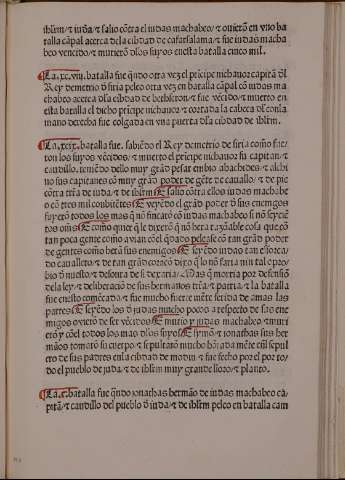 iħrlm / ⁊ iuda / ⁊ salio cõtra el iudas machabeo / ⁊ ouierõ en vno ba
talla cãpal acerca dela cibdad de cafarsalama / ⁊ fue iudas macha
beo vencido / ⁊ muriero dlos suyos enesta batalla cinco mil.
La .xc.viij. batalla fue qñdo otra vez el pricipe nichanor capitã dl
Rey demetrio d siria peleo otra vez en batalla cãpal cõ iudas ma
chabeo acerca dela cibdad de bethoron / ⁊ fue vécido / ⁊ muerto en
esta batalla el dicho pricipe nichanor / ⁊ cortada la cabeça dl con la
mano derecha fue colgada en vna puerta dla cibdad de ihrlm.
La .xcix. batalla fue. sabiédo el Rey demetrio de siria como fue
ron los suyos vécidos / ⁊ muerto el pricipe nichanor su capitan / ⁊
caudillo. teniédo dello muy grãd pesar embio abachides / ⁊ alchi
no sus capitanes cõ muy grãd poder de géte de cauallo / ⁊ de pie
cõtra trra d iuda / ⁊ de ihrlm E salio cõtra ellos iudas machabe
o cõ tres mil conbatiétes E veyédo el grãd poder d sus enemigos
fuyerõ todos los mas q no fincarõ cõ iudas machabeo si nõ seycié
tos oms E como quier q le dixerõ q nõ era razõable cosa que cõ
tan poca gente como a vian cõel quedado pelease cõ tan grãd poder
de gentes como herã sus enemigos E seyédo iudas tan esforça
do cauallero / ⁊ de tan grãd coraçõ dixo q lo nõ faria nin tal opro
bio d nuestro / ⁊ desonra de si dexaria / Mas q morria por defensiõ
dela ley / ⁊ deliberaciõ de sus hermanos trra / ⁊ patria / ⁊ la batalla
fue enesto començada / ⁊ fue mucho fuerteméte ferida de amas las
partes E seyédo los d iudas mucho pocos a respecto de sus ene
migos ouierõ de ser vécidos E murio y iudas machabeo / ⁊ muri
erõ y cõel todos los mas dlos suyos E symõ / ⁊ ionathas sus her
manos tomarõ su cuerpo / ⁊ sepultarõ mucho hõrada méte enl sepul
cro de sus padres enla cibdad de modin / ⁊ fue fecho por el por to
do el pueblo de juda / ⁊ de ihrlm muy grande lloro / ⁊ planto.
La .c. batalla fue qñdo ionathas hermão de iudas machabeo ca
pitã / ⁊ caudillo del pueblo d iuda / ⁊ de ihrlm peleo en batalla cam